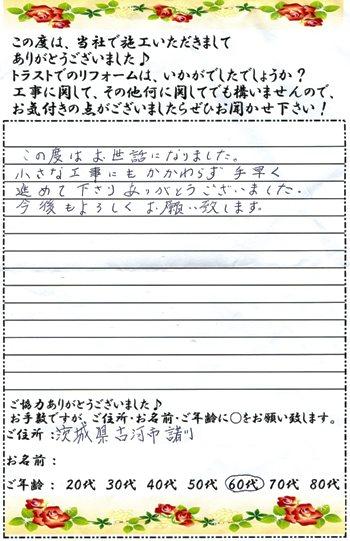 この度は、当社で施工いただきまして
ありがとうございました♪
トラストでのリフォームは、いかがでしたでしょうか？
工事に関して、その他何に関してでも構いませんので、
お気付きの点がございましたらぜひお聞かせ下さい！
この度はお世話になりました。
小さな工事にもかかわらず手早く
進めて下さりありがとうございました。
今後もよろしくお願い致します。
ご協力ありがとうございました♪
お手数ですが、ご住所・お名前・ご年齢に○をお願い致します。
ご住所：茨城県古河市諸川
お名前：
ご年齢： 20代 30代 40代 50代 60代 70代 80代